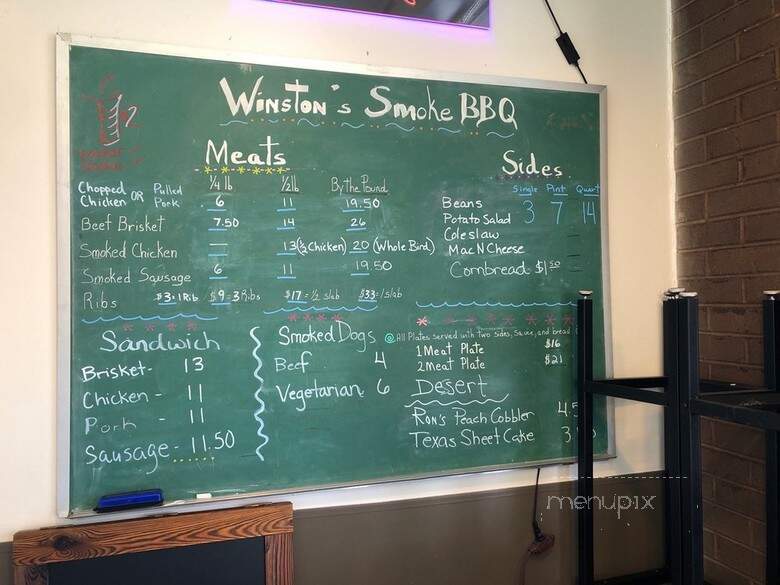 Winston's Smoke BBQ
Meats
1/4 lb 1/2 lb By the Pound
Chopped Chicken OR Pulled Pork 6 11 19.50
Beef Brisket 7.50 14 26
Smoked Chicken — 13 (1/2 Chicken) 20 (Whole Bird)
Smoked Sausage 6 11 19.50
Ribs $3.1 Rib $9=3 Ribs $17=1/2 slab $33=/slab
Sides
Single Pint Quart
3 7 14
Beans
Potato Salad
Coleslaw
Mac N Cheese
Cornbread $1.50
Sandwich
Brisket- 13
Chicken - 11
Pork - 11
Sausage - 11.50
Smoked Dogs
Beef 4
Vegetarian 6
All Plates served with two sides, sauce, and bread
1 Meat Plate $16
2 Meat Plate $21
Desert
Ron's Peach Cobbler
Texas Sheet Cake
menupix